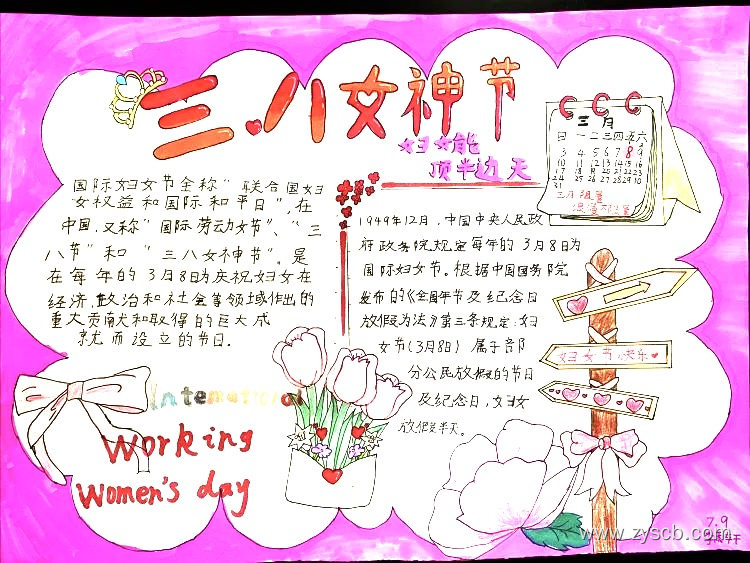 三.八女神节
妇女能
顶半边天
三月
日一二三四五六
3 4 5 6 7 8 9
10 11 12 13 14 15 16
17 18 19 20 21 22 23
24 25 26 27 28 29 30
31
国际妇女节全称"联合国妇
女权益和国际和平日",在
中国,又称"国际劳动女节"、"三
八节"和"三八女神节"。是
在每年的3月8日为庆祝妇女在
经济,政治和社会等领域作出的
重大贡献和取得的巨大成
就而设立的节日.
1949年12月,中国中央人民政
府政务院规定每年的3月8日为
国际妇女节。根据中国国务院
发布的《全国年节及纪念日
放假办法》第三条规定:妇
女节(3月8日)属于部
分公民放假的节日
及纪念日,妇女
放假半天。
妇女节快乐
International
Working
Women's day
7.9
www.zyscb.com